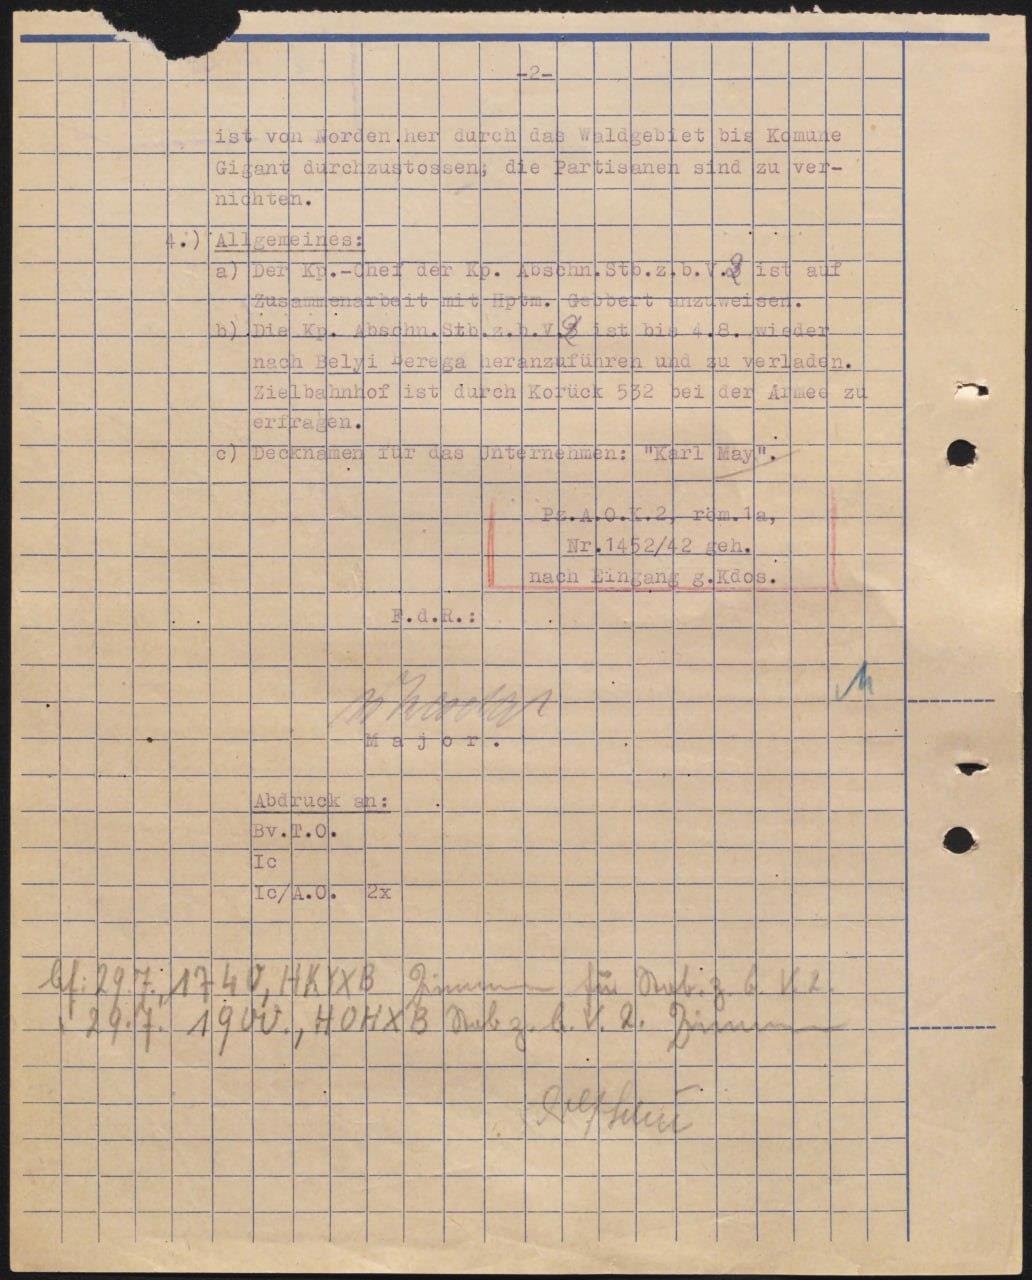 -2-
ist von Norden her durch das Waldgebiet bis Komune
Gigant durchzustossen; die Partisanen sind zu ver-
nichten.
4.) Allgemeines:
a) Der Kp.-Chef der Kp. Abschn.Stb.z.b.V.2 ist auf
Zusammenarbeit mit Hptm. Gebbert anzuweisen.
b) Die Kp. Abschn.Stb.z.b.V.2 ist bis 4.8. wieder
nach Belyi Berega heranzuführen und zu verladen.
Zielbahnhof ist durch Korück 532 bei der Armee zu
erfragen.
c) Decknamen für das Unternehmen: "Karl May".
Pz.A.O.K.2, röm.1a,
Nr.1452/42 geh.
nach Eingang g.Kdos.
F.d.R.:
Major.
Abdruck an:
Bv.T.O.
Ic
Ic/A.O. 2x
29.7., 1740, für Stab.z.b.V.2.
29.7. 1900., HOHXB Stab z.b.V.2.